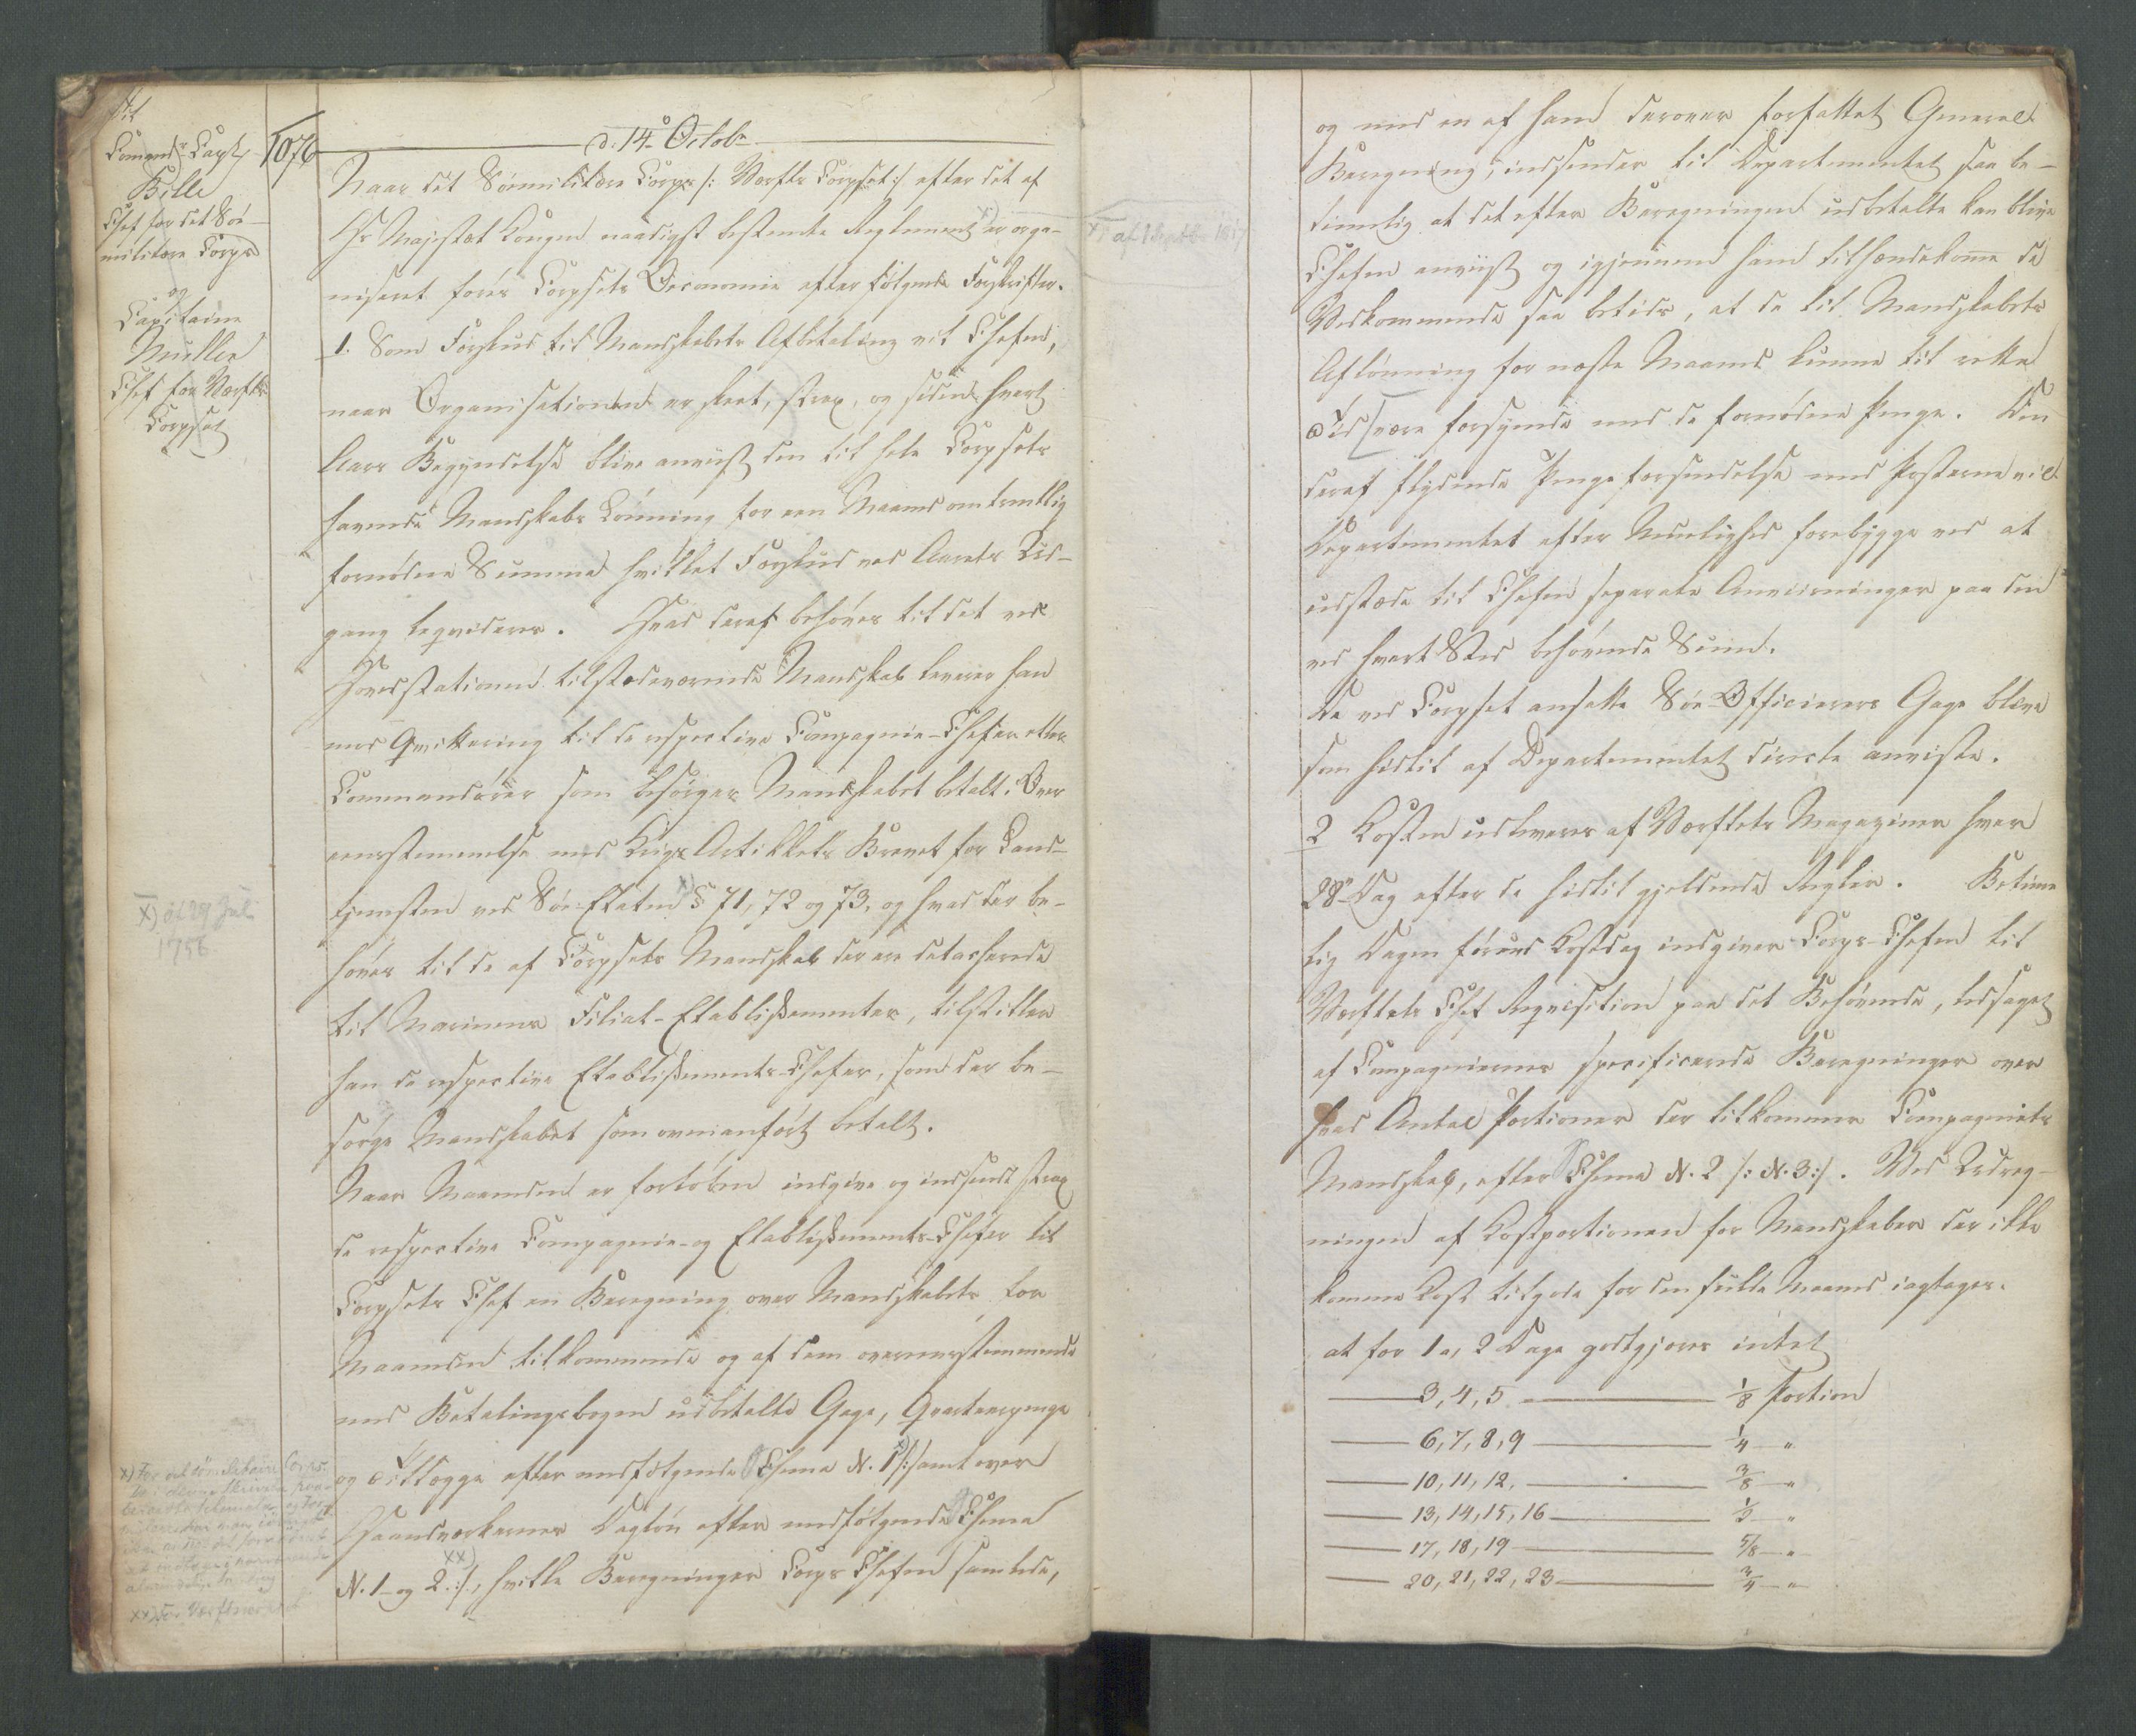 Til
Comand: Capt:
Bille
Chef for det Söe-
militære Corps
og
Capitaine
Müller
Chef for Værfts-
Corpset
1076
d. 14de Octobr
Naar det Sömilitære Corps /: Værfts Corpset :/ efter det af
Hs Majestæt Kongen naadigst bestemte Reglement x) er orga-
niseret föres Corpsets Oeconomie efter fölgende Forskrifter.
1. Som Forskud til Mandskabets Afbetaling vil Chefen,
naar Organisationen er skeet, strax, og siden hvert
Aars Begyndelse blive anviist den til hele Corpsets
havende Mandskabs Lönning for een Maaned omtrentlig
fornödne Summa hvilket Forskud ved Aarets Ud-
gang liqvideres. Hvad deraf behöves til det ved
Hovedstationen tilstedeværende Mandskab leverer han
mod Qvittering til de respective Compagnie-Chefer eller
Commandörer som besörger Mandskabet betalt. Over
eensstemmelse med Krigs Artikkels Brevet for Land-
tjenesten ved Söe-Etaten x) § 71, 72 og 73, og hvad der be-
höves til de af Corpsets Mandskab der ere detacherede
til Marinens Filial-Etablissementer, tilstiller
han de respective Etablissements-Chefer, som der be-
sörge Mandskabet som ovenanfört betalt.
Naar Maaneden er forlöben indgive og indsende strax
de respective Compagnie- og Etablissements-Chefer til
Corpsets Chef en Beregning over Mandskabets for
Maaneden tilkommende og af dem overeensstemmende
med Betalingsbogen udbetalte Gage, Qvarteerpenge
og Tillægge efter medfölgende Schema N. 1 x) /: samt over
Haandværkernes Daglön efter medfölgende Schema
N. 1 og 2 :/ xx), hvilke Beregninger Corps Chefen samlede,
x) af 29 Juli
1756
x) For det sömilitaire Corps.
xx) For Værftscorpset
x) af 1 Septbr 1817
og med en af ham derover forfattet General
Beregning, indsender til Departementet saa be-
timelig at det efter Beregningen udbetalte kan blive
Chefen anviist og igjennem ham tilhændekomme de
Vedkommende saa betids, at de til Mandskabets
Aflönning for næste Maaned kunne til rette
Tid være forsynede med de fornödne Penge. Den
deraf flydende Penge forsendelse med Posterne vil
Departementet efter Muelighed forebygge ved at
udstæde til Chefen separate Anviisninger paa den
ved hvert Sted behövende Sum.
De ved Corpset ansatte Söe-Officierers Gage blive
som hidtil af Departementet directe anviste.
2 Kosten udleveres af Værftets Magaziner hver
28de Dag efter de hidtil gjeldende Regler. Betime
lig Dagen förend Kostdag indgiver Corps-Chefen til
Værftets Chef Reqvisition paa det Behövende, ledsaget
af Compagniernes specificerede Beregninger over
hvad Antal Portioner der tilkommer Compagniets
Mandskab, efter Schema N. 2 /: N. 3 :/. Ved Udreg-
ningen af Kostportionen for Mandskaber der ikke
komme Kost tilgode for den fulde Maaned iagttages.
at for 1 a, 2 Dage godtgjöres intet
3, 4, 5 1/8 Portion
6, 7, 8, 9 1/4 "
10, 11, 12. 3/8 "
13, 14, 15, 16 1/2 "
17, 18, 19 5/8 "
20, 21, 22, 23 3/4 "